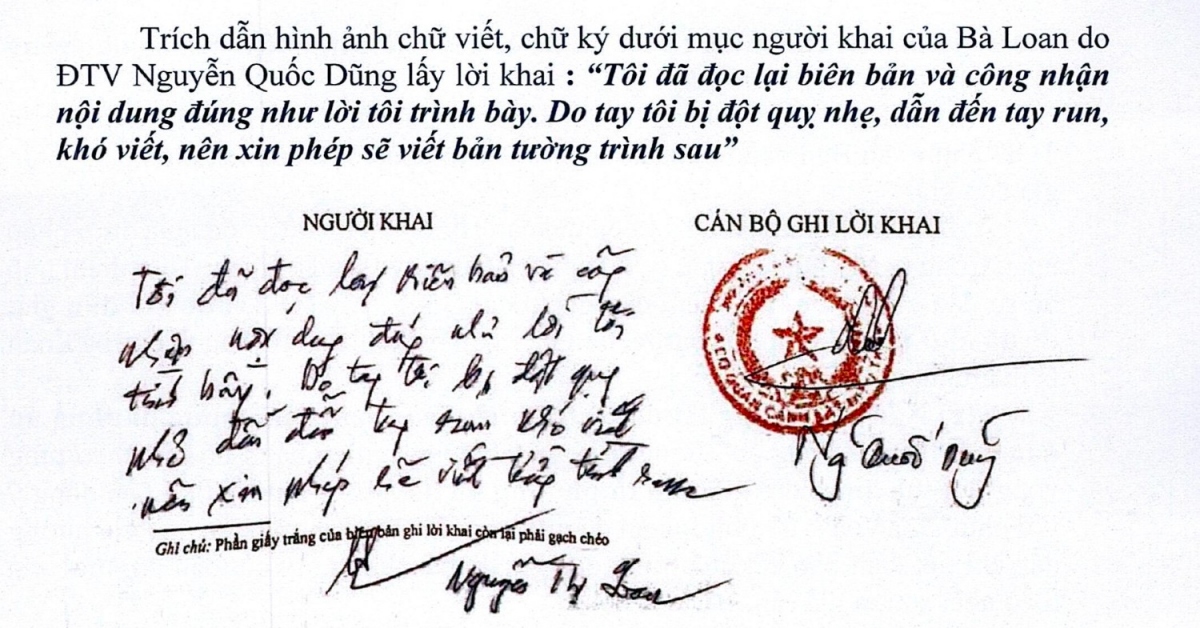 Trích dẫn hình ảnh chữ viết, chữ ký dưới mục người khai của Bà Loan do
ĐTV Nguyễn Quốc Dũng lấy lời khai : “Tôi đã đọc lại biên bản và công nhận
nội dung đúng như lời tôi trình bày. Do tay tôi bị đột quỵ nhẹ, dẫn đến tay run,
khó viết, nên xin phép sẽ viết bản tường trình sau”
NGƯỜI KHAI
CÁN BỘ GHI LỜI KHAI
Tôi đã đọc lại biên bản và công
nhận nội dung đúng như lời tôi
trình bày. Do tay tôi bị đột quỵ
nhẹ dẫn đến tay run khó viết
nên xin phép sẽ viết bảng tình
CƠ QUAN CẢNH SÁT
Ng Quốc Dũng
Ghi chú: Phần giấy trắng của biên bản ghi lời khai còn lại phải gạch chéo
Nguyễn Thị Loan